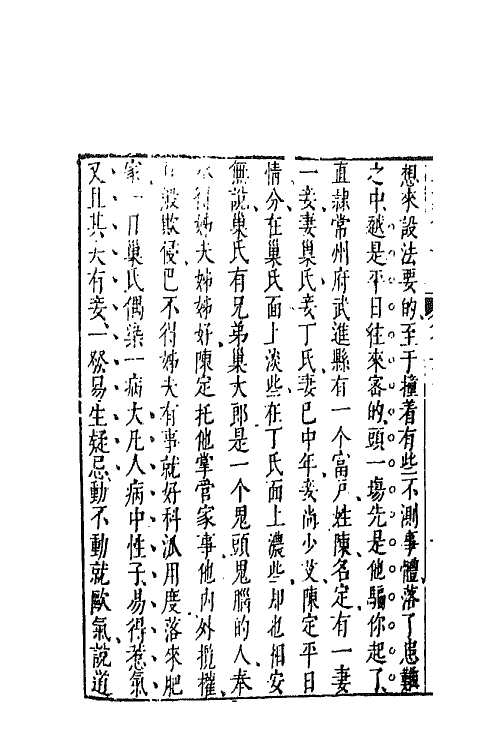 想來設法要的至于撞着有些不測事體落了患難
之中越是平日往來審的頭一塲先是他騙你起了
直隸常州府武進縣有一个富戸姓陳名定有一妻
一妾妻巢氏妾丁氏妻已中年妾尚少艾陳定平日
情分在巢氏面上淡些在丁氏面上濃些却也相安
無說巢氏有兄弟巢大郎是一个鬼頭鬼腦的人奉
承得姊夫姊姊好陳定托他掌管家事他内外攬權
百般欺侵巴不得姊夫有事就好科派用度落來肥
家一日巢氏偶染一病大凡人病中性子易得惹氣
又且其夫有妾一發易生疑忌動不動就歐氣說道